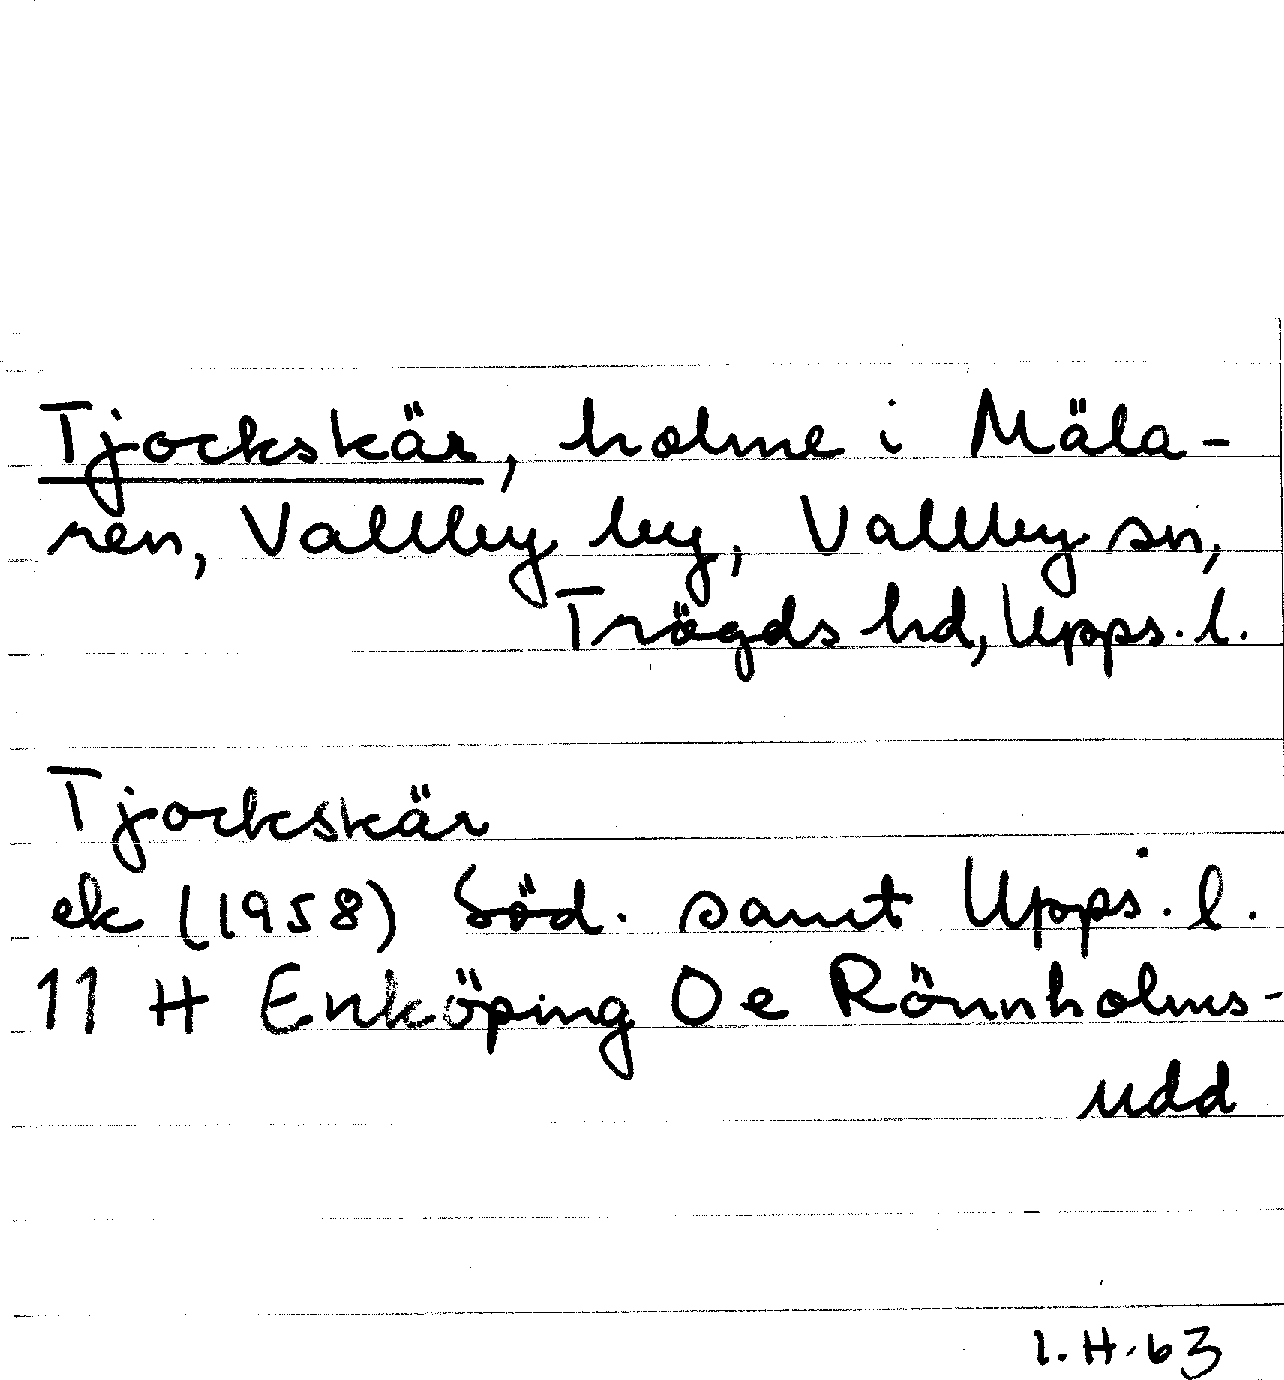 Tjockskär, holme i Mäla-
ren, Vallby by, Vallby sn,
Trögds hd, Upps. l.
Tjockskär
ek (1958) Söd. samt Upps. l.
11 H Enköping 0 e Rönnholms-
udd
I. H. 63